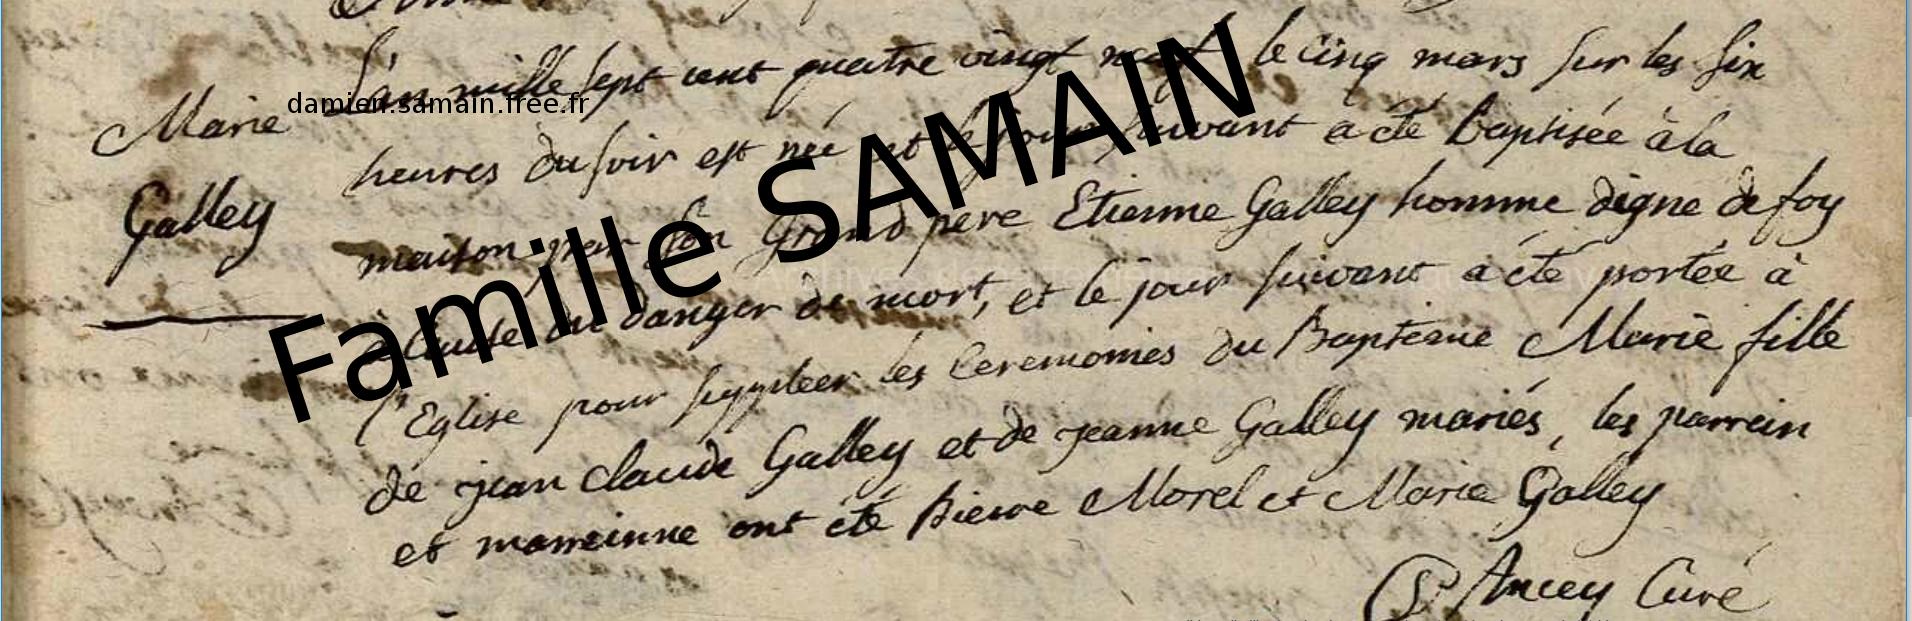 L'an mille sept cent quatre vingt neuf le cinq mars sur les six
Marie
damien.samain.free.fr
heures du soir est née et le jour suivant a été baptisée à la
Galley
maison par son Grand pere Etienne Galley homme digne de foy
à cause du danger de mort, et le jour suivant a été portée à
l'Eglise pour suppleer les Ceremonies du Baptême Marie fille
de jean claude Galley et de jeanne Galley mariés, les parrein
et marreinne ont été Pierre Morel et Marie Galley
Ancey Curé
Famille SAMAIN